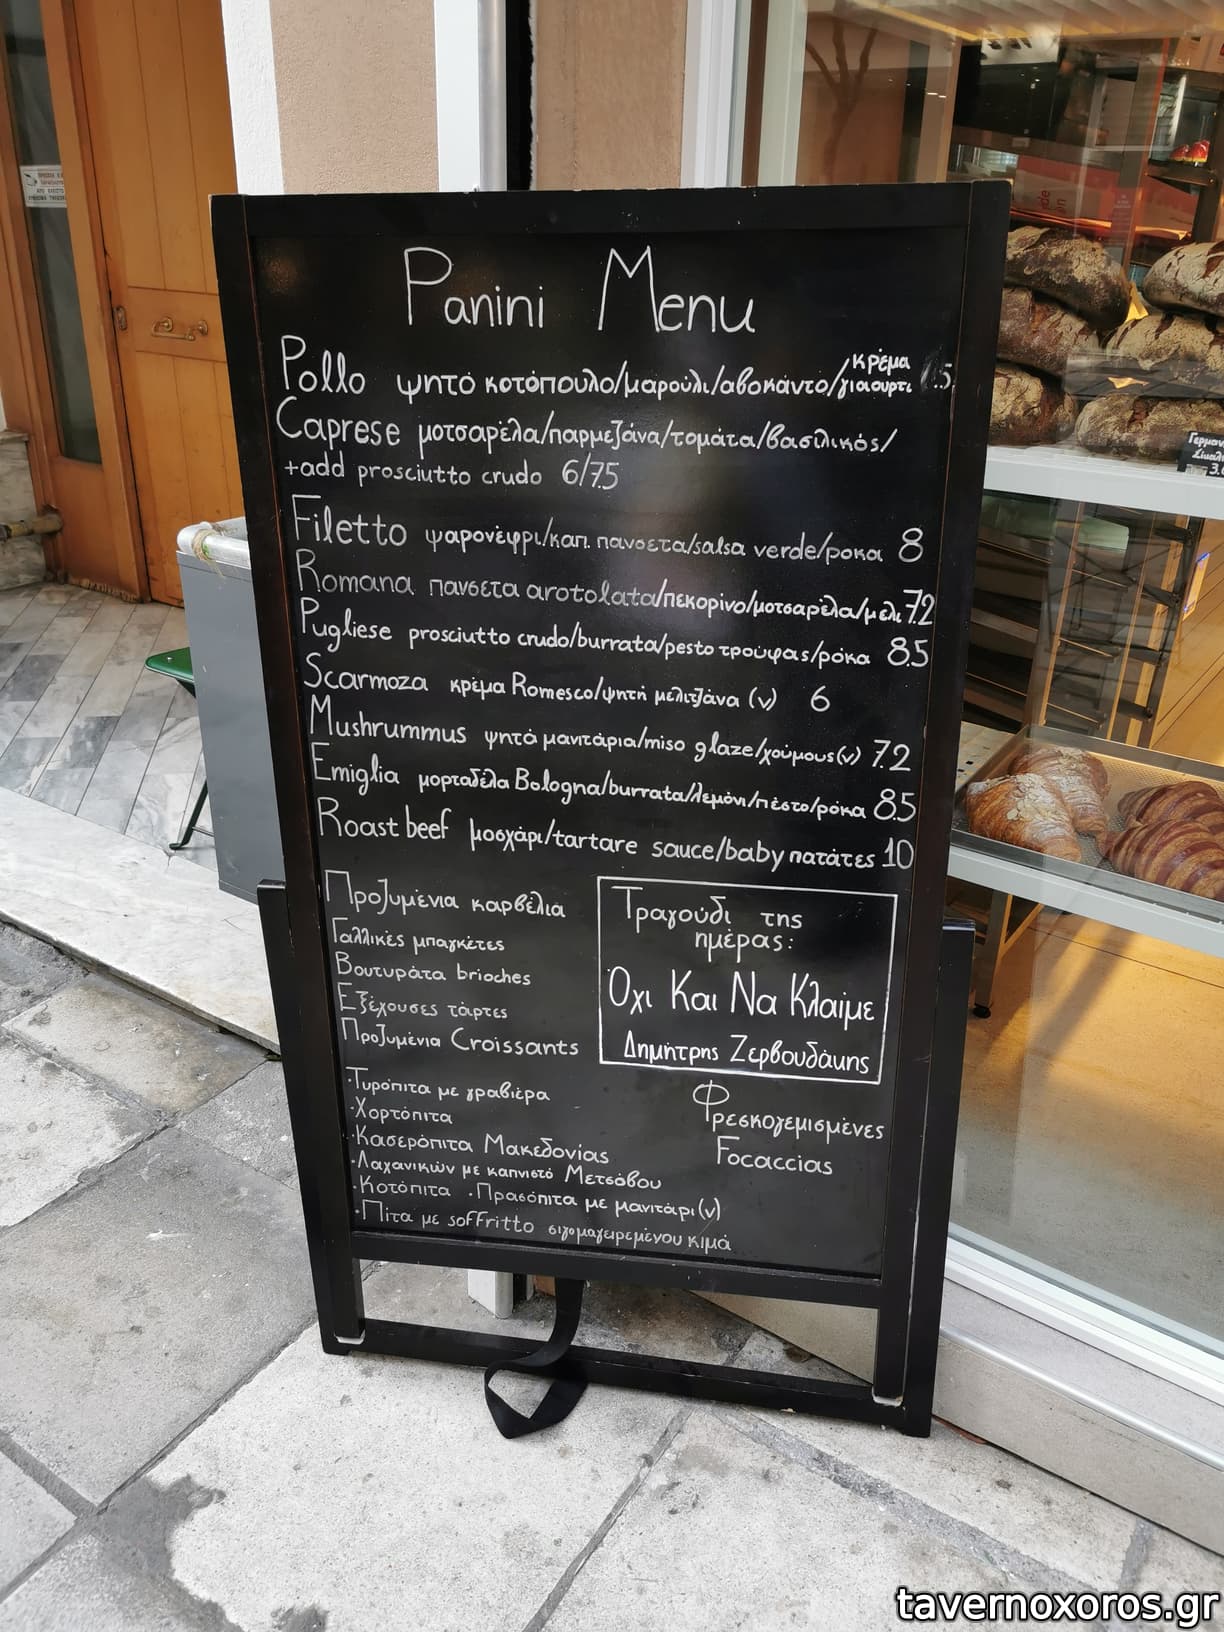 Panini Menu
Pollo ψητό κοτόπουλο/μαρούλι/αβοκάντο/κρέμα γιαουρτι
Caprese μοτσαρέλα/παρμεζάνα/τομάτα/βασιλικός/
+add prosciutto crudo 6/7.5
Filetto ψαρονέφρι/καπ. πανσετα/salsa verde/ροκα 8
Romana πανσετα arotolata/πεκορίνο/μοτσαρέλα/μέλι 7.2
Pugliese prosciutto crudo/burrata/pesto τρούφας/ρόκα 8.5
Scarmoza κρέμα Romesco/ψητή μελιτζάνα (v) 6
Mushrummus ψητά μανιτάρια/miso glaze/χούμους(v) 7.2
Emiglia μορταδέλα Bologna/burrata/λεμόνι/πέστο/ρόκα 8.5
Roast beef μοσχάρι/tartare sauce/baby πατάτες 10
Προζυμένια καρβέλια
Γαλλικές μπαγκέτες
Βουτυράτα brioches
Εξέχουσες τάρτες
Προζυμένια Croissants
Τραγούδι της
ημέρας:
Οχι Και Να Κλαίμε
Δημήτρης Ζερβουδάκης
·Τυρόπιτα με γραβιέρα
·Χορτόπιτα
·Κασερόπιτα Μακεδονίας
·Λαχανικών με καπνιστό Μετσόβου
·Κοτόπιτα ·Πρασόπιτα με μανιτάρι(v)
·Πίτα με soffritto σιγομαγειρεμένου κιμά
Φρεσκογεμισμένες
Focaccias
tavernoxoros.gr